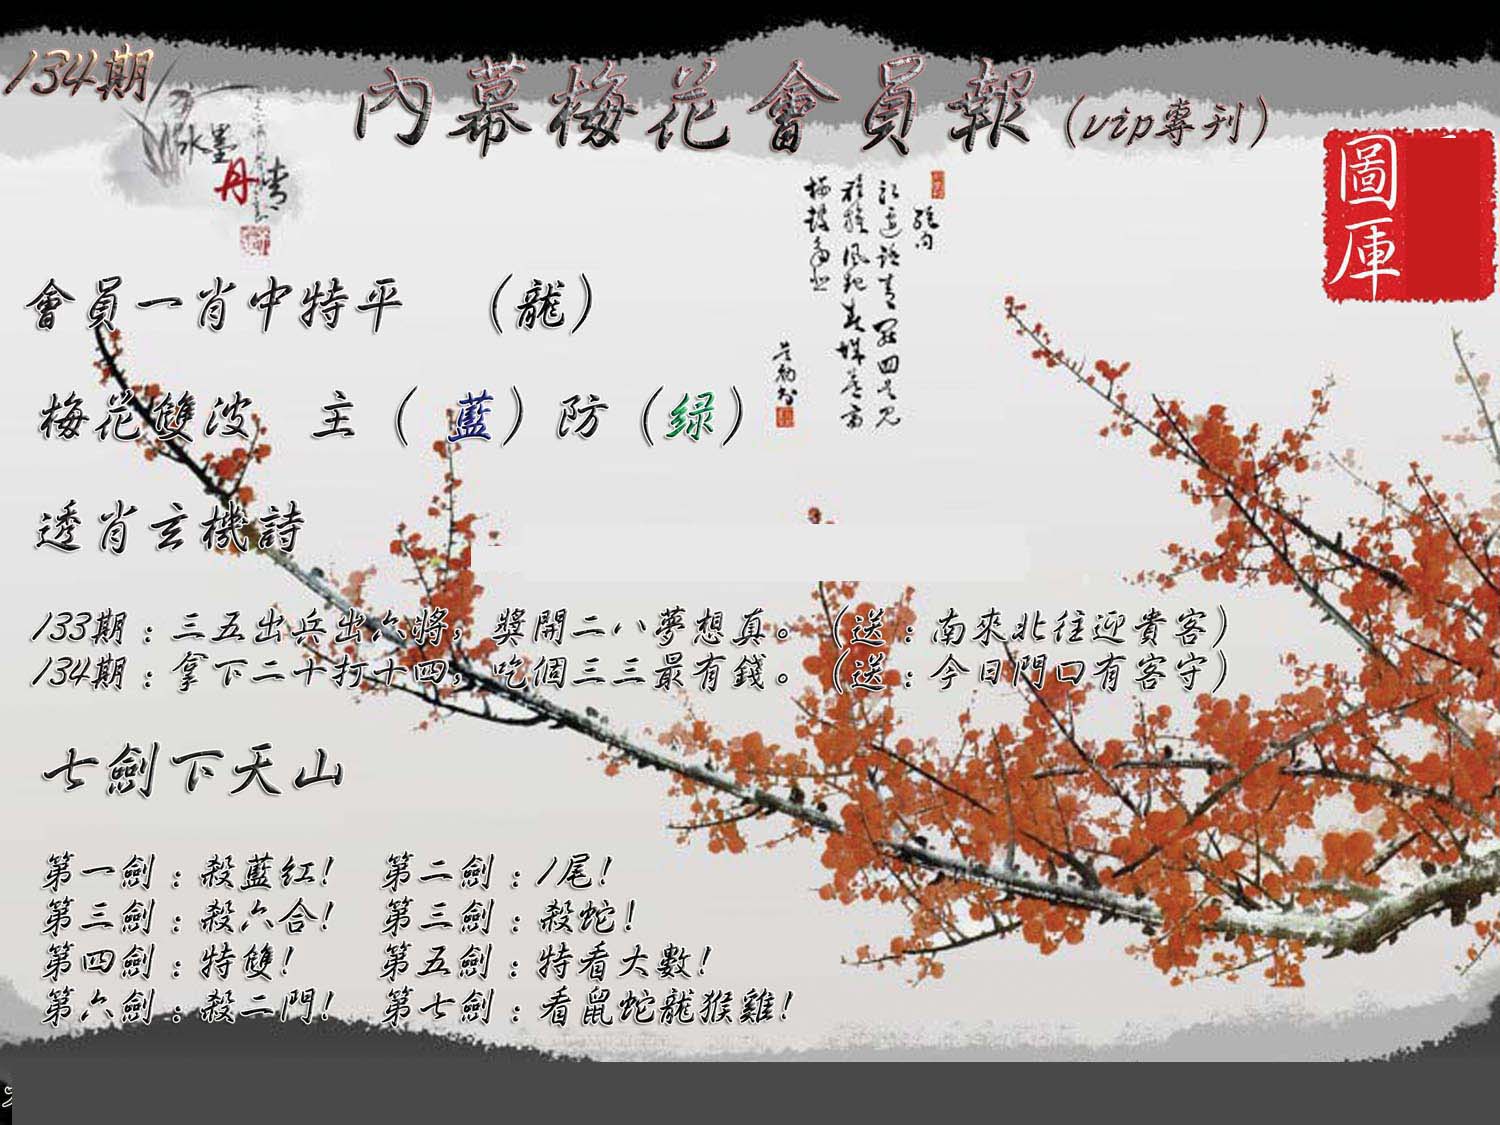 134期
內幕梅花會員報(vip專刊)
水墨
丹青
圖庫
會員一肖中特平 （龍）
梅花雙波 主（藍）防（绿）
透肖玄機詩
133期：三五出兵出六將，獎開二八夢想真。（送：南來北往迎貴客）
134期：拿下二十打十四，吃個三三最有錢。（送：今日門口有客守）
七劍下天山
第一劍：殺藍紅！ 第二劍：1尾！
第三劍：殺六合！ 第三劍：殺蛇！
第四劍：特雙！ 第五劍：特看大數！
第六劍：殺二門！ 第七劍：看鼠蛇龍猴雞！